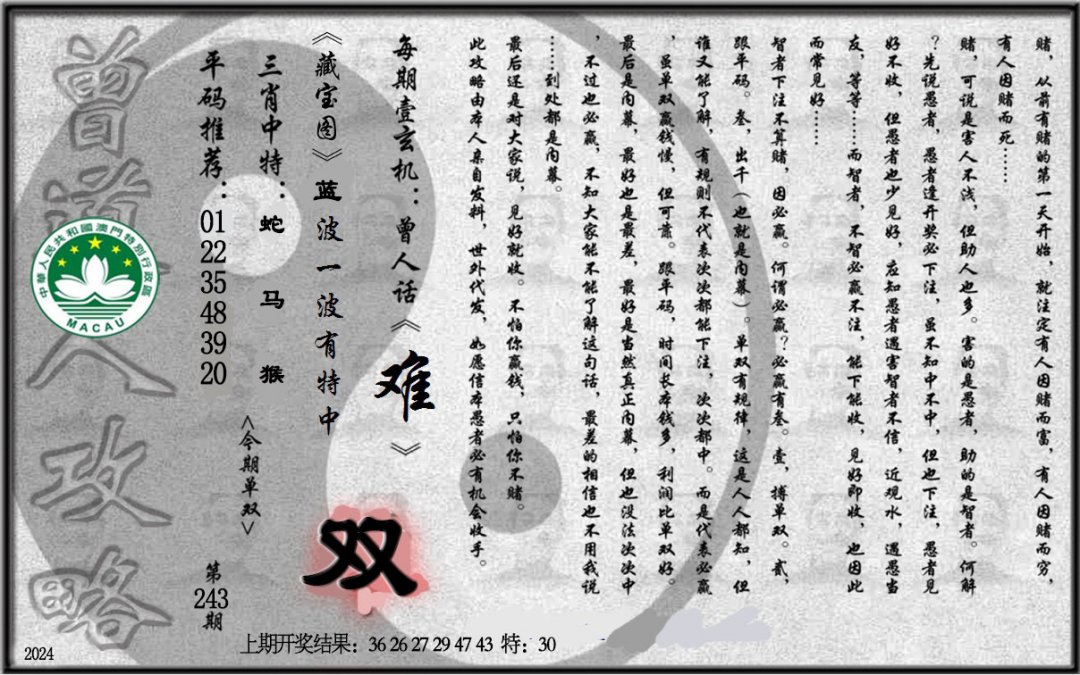 赌，从前有赌的第一天开始，就注定有人因赌而富，有人因赌而穷，
有人因赌而死……
赌，可说是害人不浅，但助人也多。害的是愚者，助的是智者。何解
？先说愚者，愚者逢开奖必下注，虽不知中不中，但也下注，愚者见
好不收，但愚者也少见好，应知愚者遇害智者不信，近观水，遇愚当
友，等等……而智者，不智必赢不注，能下能收，见好即收，也因此
而常见好……
智者下注不算赌，因必赢。何谓必赢？必赢有叁。壹，搏单双。贰，
跟平码。叁，出千（也就是内幕）。单双有规律，这是人人都知，但
谁又能了解，有规则不代表次次都能下注，次次都中。而是代表必赢
，虽单双赢钱慢，但可靠。跟平码，时间长本钱多，利润比单双好。
最后是内幕，最好也是最差，最好是当然真正内幕，但也没法次次中
，不过也必赢，不知大家能不能了解这句话，最差的相信也不用我说
……到处都是内幕。
最后还是对大家说，见好就收。不怕你赢钱，只怕你不赌。
此攻略由本人亲自发料，世外代发，如愿信本愚者必有机会收手。
每期壹玄机：曾人话《难》
《藏宝图》蓝波一波有特中
双
三肖中特：蛇 马 猴
<今期单双>
平码推荐：01 22 35 48 39 20
第243期
曾道人攻略
中華人民共和國澳門特別行政區
MACAU
上期开奖结果：36 26 27 29 47 43 特：30
2024